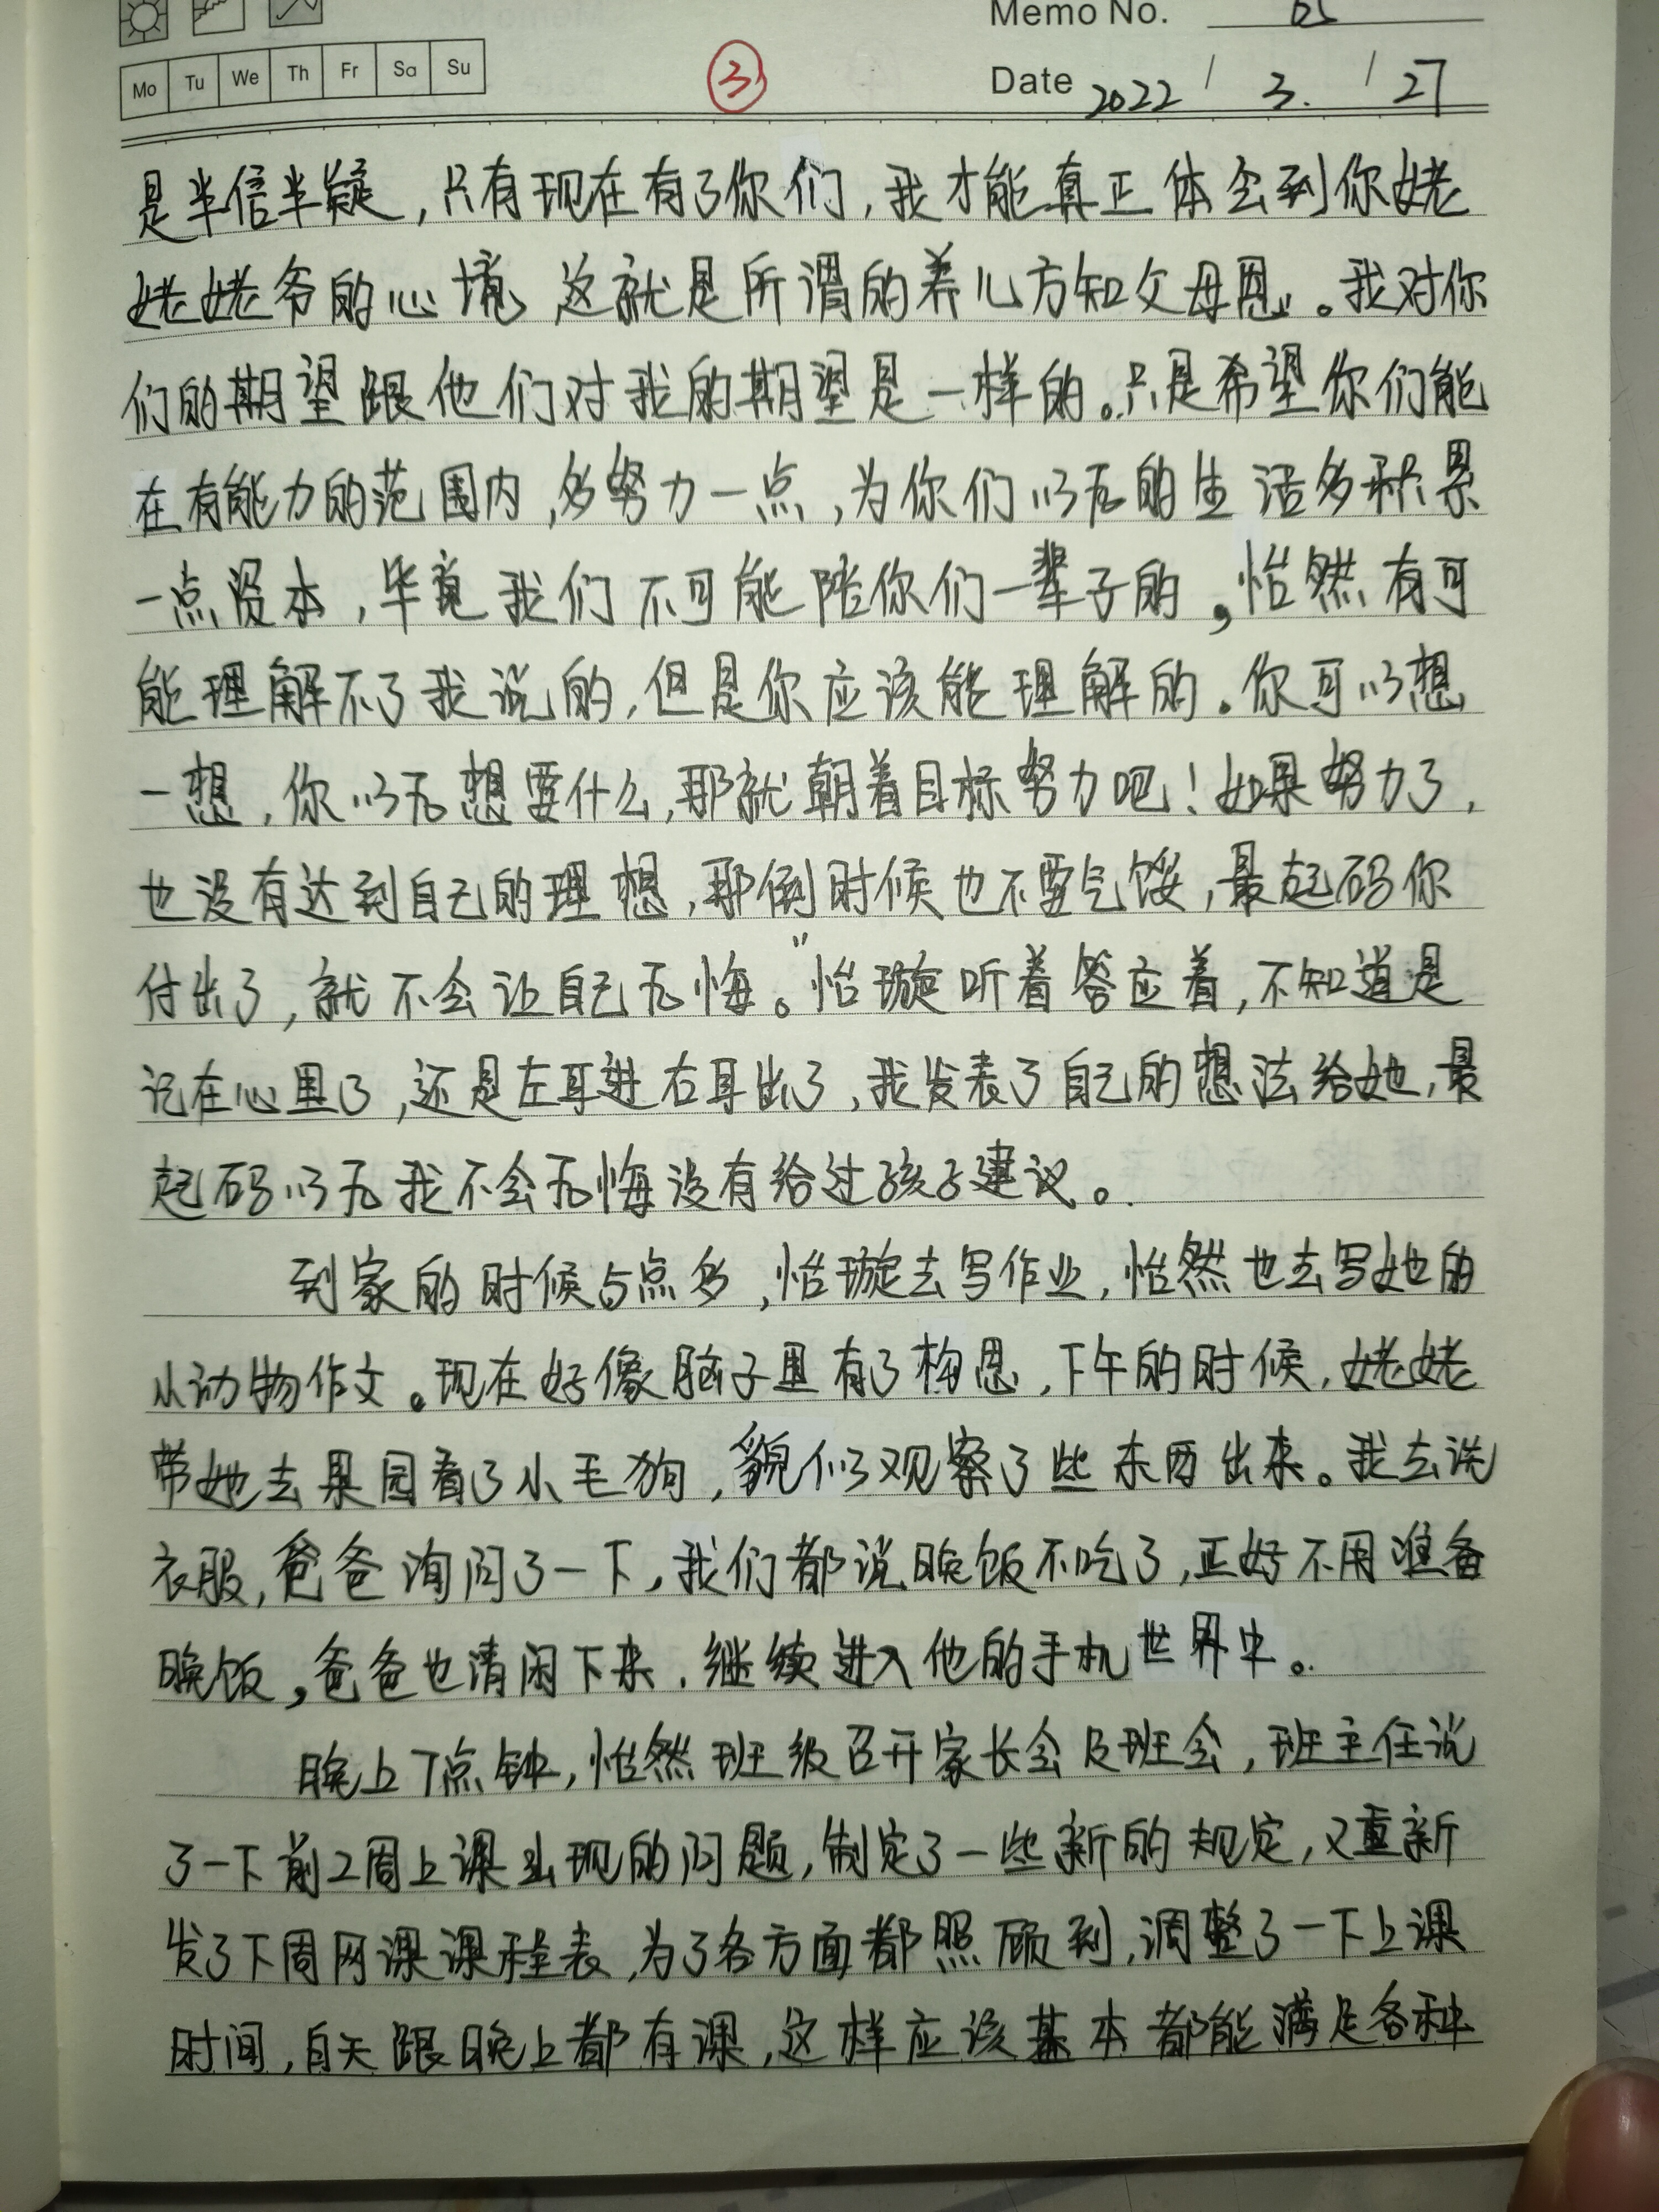 Memo No.
Mo Tu We Th Fr Sa Su
③
Date 2022 / 3. / 27
是半信半疑，只有现在有了你们，我才能真正体会到你姥
姥姥爷的心境，这就是所谓的养儿方知父母恩"。我对你
们的期望跟他们对我的期望是一样的。只是希望你们能
在有能力的范围内，多努力一点，为你们以后的生活多积累
一点资本，毕竟我们不可能陪你们一辈子的，怡然有可
能理解不了我说的，但是你应该能理解的。你可以想
一想，你以后想要什么，那就朝着目标努力吧！如果努力了，
也没有达到自己的理想，那倒时候也不要气馁，最起码你
付出了，就不会让自己后悔。"怡璇听着答应着，不知道是
记在心里了，还是左耳进右耳出了，我发表了自己的想法给她，最
起码以后我不会后悔没有给过孩子建议。
到家的时候5点多，怡璇去写作业，怡然也去写她的
小动物作文。现在好像脑子里有了构思，下午的时候，姥姥
带她去果园看了小毛狗，貌似观察了些东西出来。我去洗
衣服，爸爸询问了一下，我们都说晚饭不吃了，正好不用准备
晚饭，爸爸也清闲下来，继续进入他的手机世界中。
晚上7点钟，怡然班级召开家长会及班会，班主任说
了一下前2周上课出现的问题，制定了一些新的规定，又重新
发了下周网课课程表，为了各方面都照顾到，调整了一下上课
时间，白天跟晚上都有课，这样应该基本都能满足各种